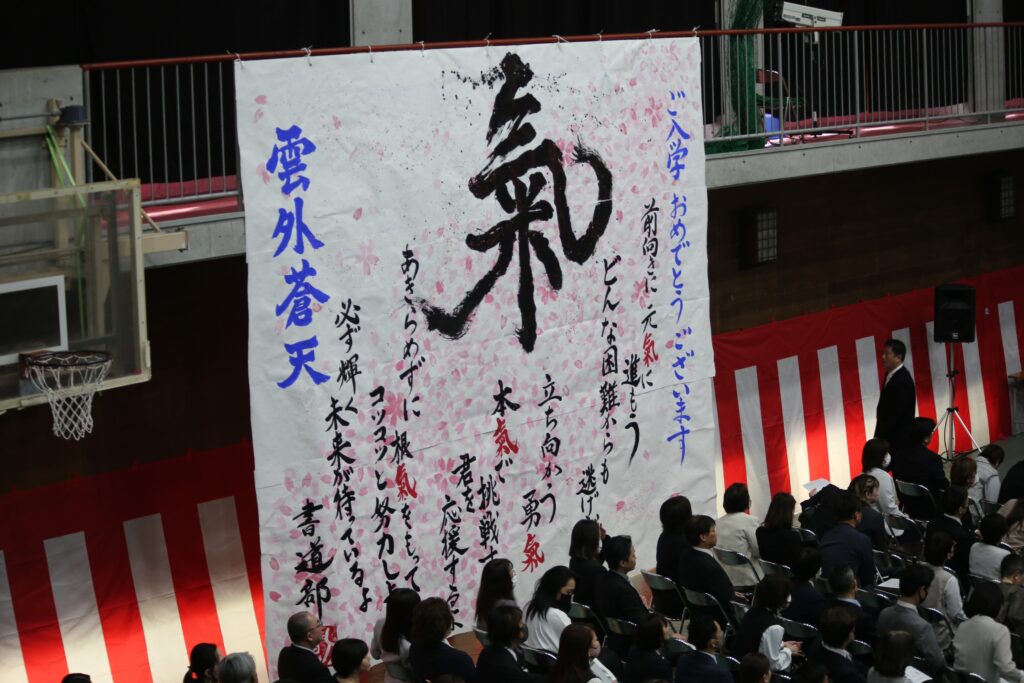 ご入学 おめでとう ございます
氣
前向きに 元氣に
進もう
どんな困難からも 逃げ
立ち向かう 勇氣
本氣で 挑戦す
君を 応援する
あきらめずに 根氣をもって
コツコツと 努力しよ
必ず輝く 未来が待っているよ
書道部
雲外蒼天